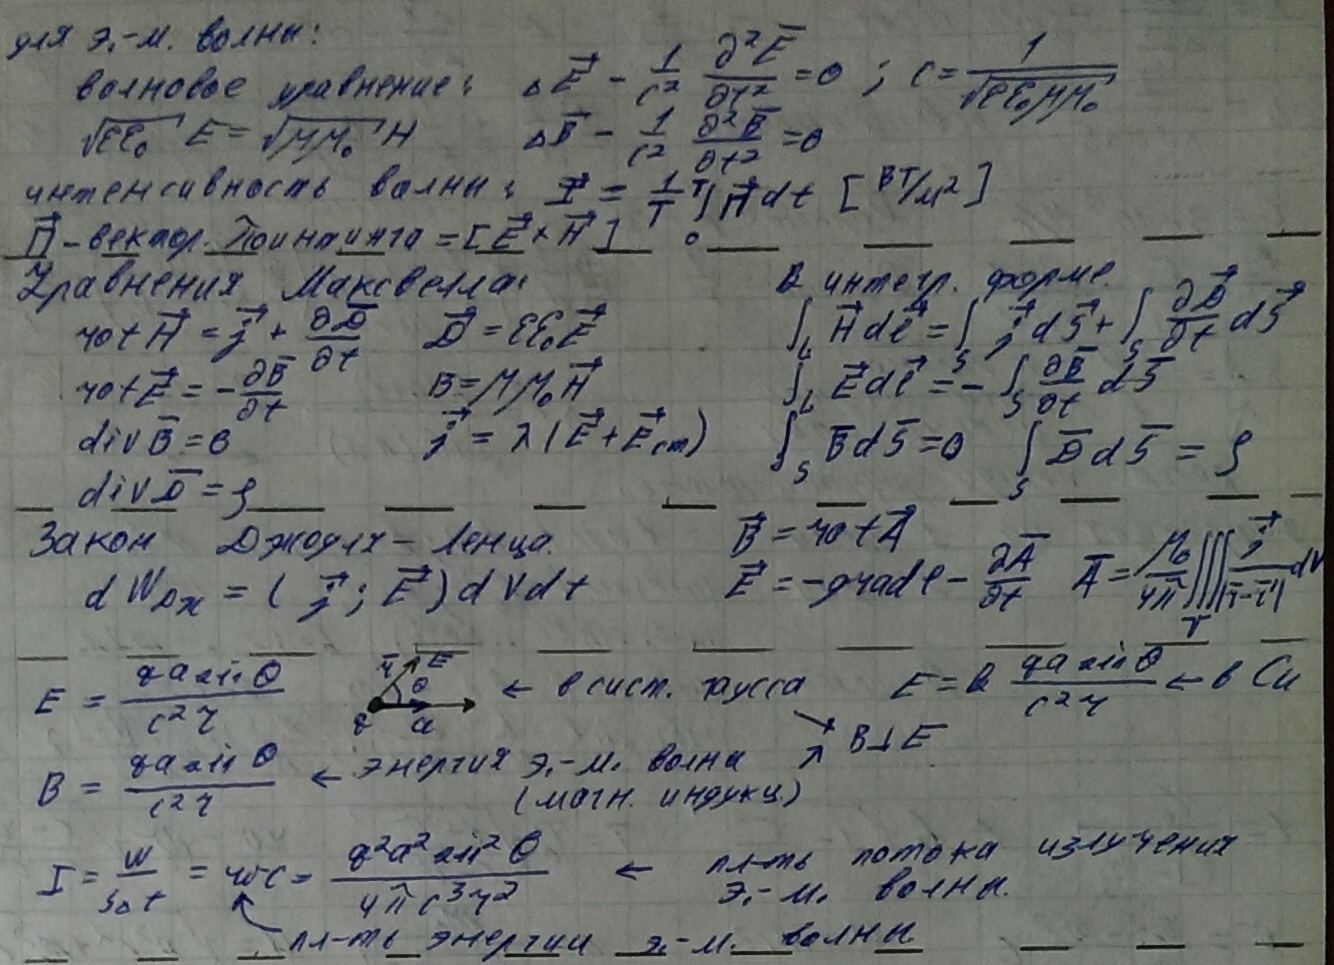 для э.-м. волны:
волновое уравнение: ΔE⃗ - 1/c² ∂²E̅/∂t² = 0 ; c = 1/√(εε₀μμ₀)
√(εε₀) E = √(μμ₀) H ΔB̅ - 1/c² ∂²B̅/∂t² = 0
интенсивность волны: I⃗ = 1/T ∫₀ᵀ П⃗ dt [Вт/м²]
П⃗ - вектор Пойнтинга = [E⃗ × H⃗]
Уравнения Максвелла: В интегр. форме.
rot H⃗ = j⃗ + ∂D̅/∂t D⃗ = εε₀E⃗ ∫_L H⃗ dl⃗ = ∫_S j⃗ dS⃗ + ∫_S ∂D⃗/∂t dS⃗
rot E⃗ = - ∂B̅/∂t B = μμ₀H⃗ ∫_L E⃗ dl⃗ = - ∫_S ∂B̅/∂t dS̅
div B̅ = 0 j⃗ = λ(E⃗ + E⃗ст) ∫_S B̅ dS̅ = 0 ∫_S D̅ dS̅ = ρ
div D̅ = ρ
Закон Джоуля - Ленца. B⃗ = rot A⃗
dWДж = (j⃗ ; E⃗) dVdt E⃗ = -grad φ - ∂A̅/∂t A̅ = μ₀/4π ∭_V j⃗/|r̅-r̅'| dV
E = qa sin θ / c²r r̅ E θ q a ← в сист. Гаусса E = k qa sin θ / c²r ← в Си
B ⊥ E
B = qa sin θ / c²r ← энергия э.-м. волны
(магн. индукц.)
I = W/SΔt = wc = q²a² sin² θ / 4πc³r² ← пл-ть потока излучения
э.-м. волны.
пл-ть энергии э.-м. волны